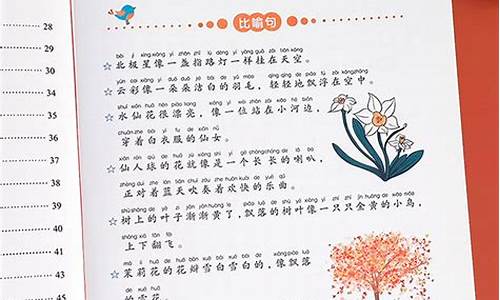 比喻句
28
31
34
35
36
37
38
39
40
41
45
běi jí xīng xiàng yì zhǎn zhǐ lù dēng yí yàng guà zài tiān kōng
☆北极星像一盏指路灯一样挂在天空。
yún cai xiàng yì duǒ duǒ jié bái de yǔ máo qīng qīng de piāo fú zài kōng zhōng
☆云彩像一朵朵洁白的羽毛，轻轻地飘浮在空中。
shuǐ xiān huā hěn piào liang xiàng yí wèi zhàn zài xiǎo hé biān
☆水仙花很漂亮，像一位站在小河边，
chuān zhe bái yī fu de xiān nǚ
穿着白衣服的仙女。
xiān rén qiú de huā jiù xiàng shì yí gè cháng cháng de lǎ ba
☆仙人球的花就像是一个长长的喇叭，
zhèng duì zhe lán tiān chuī zòu zhe huān kuài de yuè qǔ
正对着蓝天吹奏着欢快的乐曲。
shù shàng de yè zi jiàn jiàn huáng le piāo luò de shù yè xiàng yì zhī zhī jīn huáng de xiǎo niǎo
☆树上的叶子渐渐黄了，飘落的树叶像一只只金黄的小鸟，
shàng xià fān fēi
上下翻飞。
mò lì huā de huā bàn xuě bái xuě bái de xiàng piāo luò
☆茉莉花的花瓣雪白雪白的，像飘落
的雪花。